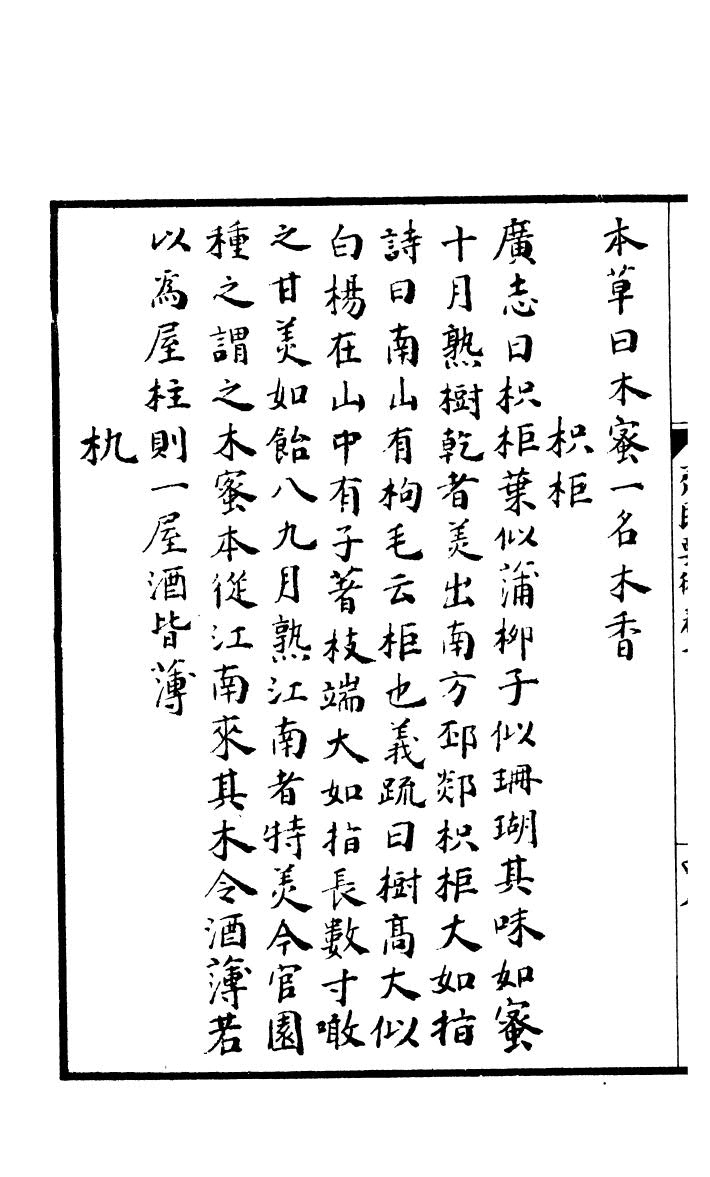 本草曰木蜜一名木香
枳柜
廣志曰枳柜葉似蒲柳子似珊瑚其味如蜜
十月熟樹乾者美出南方邳郯枳柜大如指
詩曰南山有枸毛云柜也義疏曰樹高大似
白楊在山中有子著枝端大如指長數寸噉
之甘美如飴八九月熟江南者特美今官園
種之謂之木蜜本從江南來其木令酒薄若
以為屋柱則一屋酒皆薄
朹